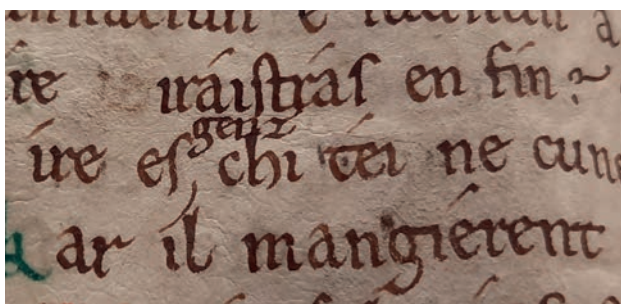 re iraistras en fin?
ire es genz chi tei ne cun
ar il mangierent